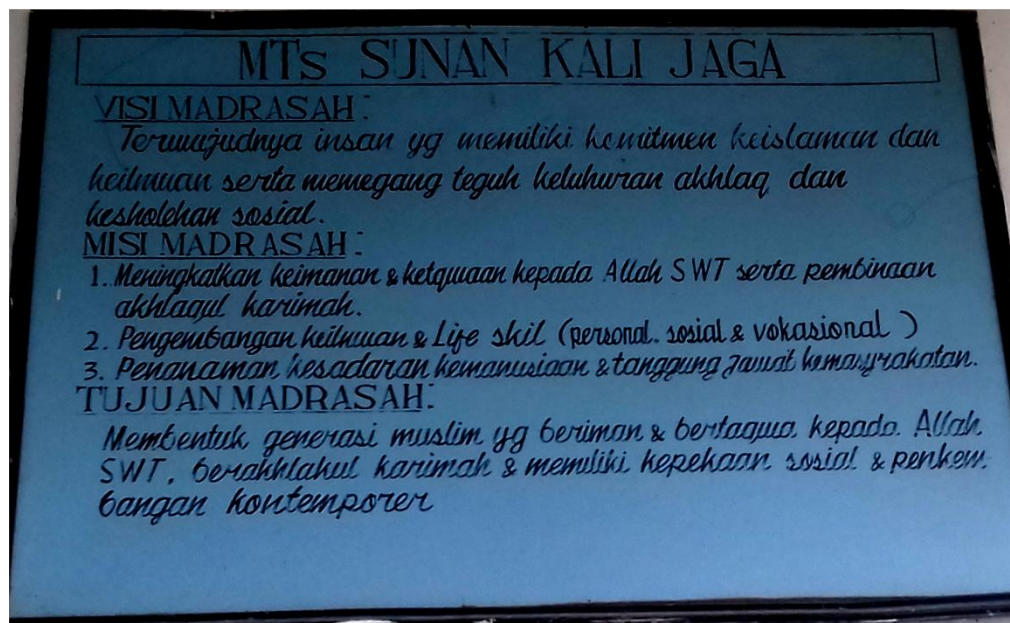 MTs SUNAN KALI JAGA
VISI MADRASAH :
Terwujudnya insan yg memiliki komitmen keislaman dan
keilmuan serta memegang teguh keluhuran akhlaq dan
kesholehan sosial.
MISI MADRASAH :
1. Meningkatkan keimanan & ketqwaan kepada Allah SWT serta pembinaan
akhlaqul karimah.
2. Pengembangan keilmuan & Life skil (personal. sosial & vokasional )
3. Penanaman kesadaran kemanusiaan & tanggung jawab kemasyrakatan.
TUJUAN MADRASAH :
Membentuk generasi muslim yg beriman & bertaqwa kepada Allah
SWT, berakhlakul karimah & memiliki kepekaan sosial & penkem
bangan kontemporer